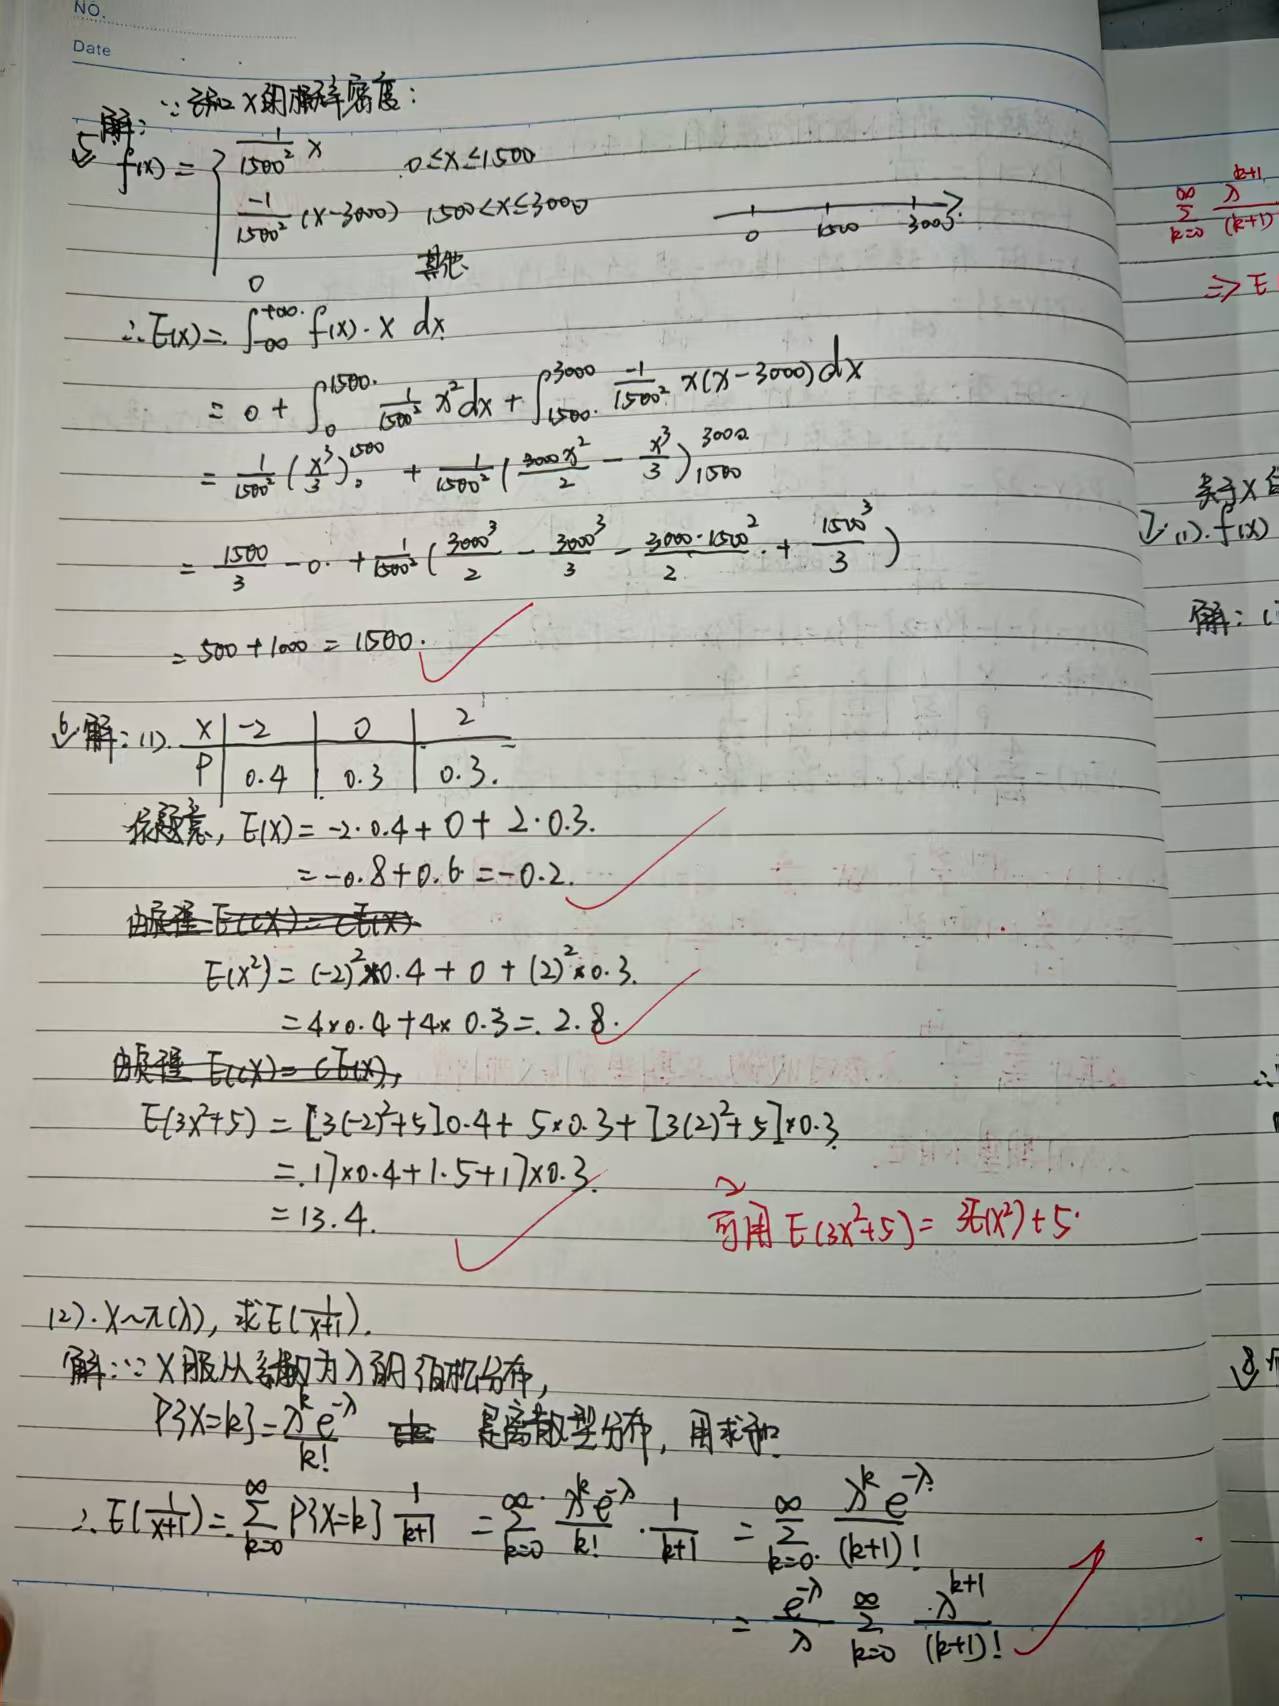 NO.
Date
5. 解: ∵ 已知 X 的概率密度:
f(x) = { 1/1500² x 0≤x≤1500
-1/1500² (x-3000) 1500<x≤3000
0 其他
0 1500 3000
∴ E(X) = ∫_{-∞}^{+∞} f(x)·x dx
= 0 + ∫_0^{1500} 1/1500² x² dx + ∫_{1500}^{3000} -1/1500² x(x-3000) dx
= 1/1500² (x³/3)_0^{1500} + 1/1500² (3000x²/2 - x³/3)_{1500}^{3000}
= 1500/3 - 0 + 1/1500² (3000³/2 - 3000³/3 - 3000·1500²/2 + 1500³/3)
= 500+1000 = 1500.
6. 解: (1). X | -2 | 0 | 2
P | 0.4 | 0.3 | 0.3.
依题意, E(X) = -2·0.4 + 0 + 2·0.3.
= -0.8+0.6 = -0.2.
由原理 E(CX) = CE(X)
E(X²) = (-2)²×0.4 + 0 + (2)²×0.3.
= 4×0.4+4×0.3 = 2.8.
由原理 E(CX) = CE(X),
E(3X²+5) = [3(-2)²+5]0.4 + 5×0.3 + [3(2)²+5]×0.3
= 17×0.4+1.5+17×0.3.
= 13.4.
可用 E(3X²+5) = 3E(X²)+5.
(2). X~π(λ), 求E(1/(X+1)).
解: ∵ X服从参数为λ的泊松分布,
P{X=k} = λ^k e^{-λ}/k! 是离散型分布, 用求和
∴ E(1/(X+1)) = ∑_{k=0}^{∞} P{X=k} 1/(k+1) = ∑_{k=0}^{∞} λ^k e^{-λ}/k! · 1/(k+1) = ∑_{k=0}^{∞} λ^k e^{-λ}/(k+1)!
= e^{-λ}/λ ∑_{k=0}^{∞} λ^{k+1}/(k+1)!
∑_{k=0}^{∞} λ^{k+1}/(k+1)
⇒ E
关于X
7. (1). f(x)
解: (
∴
8.